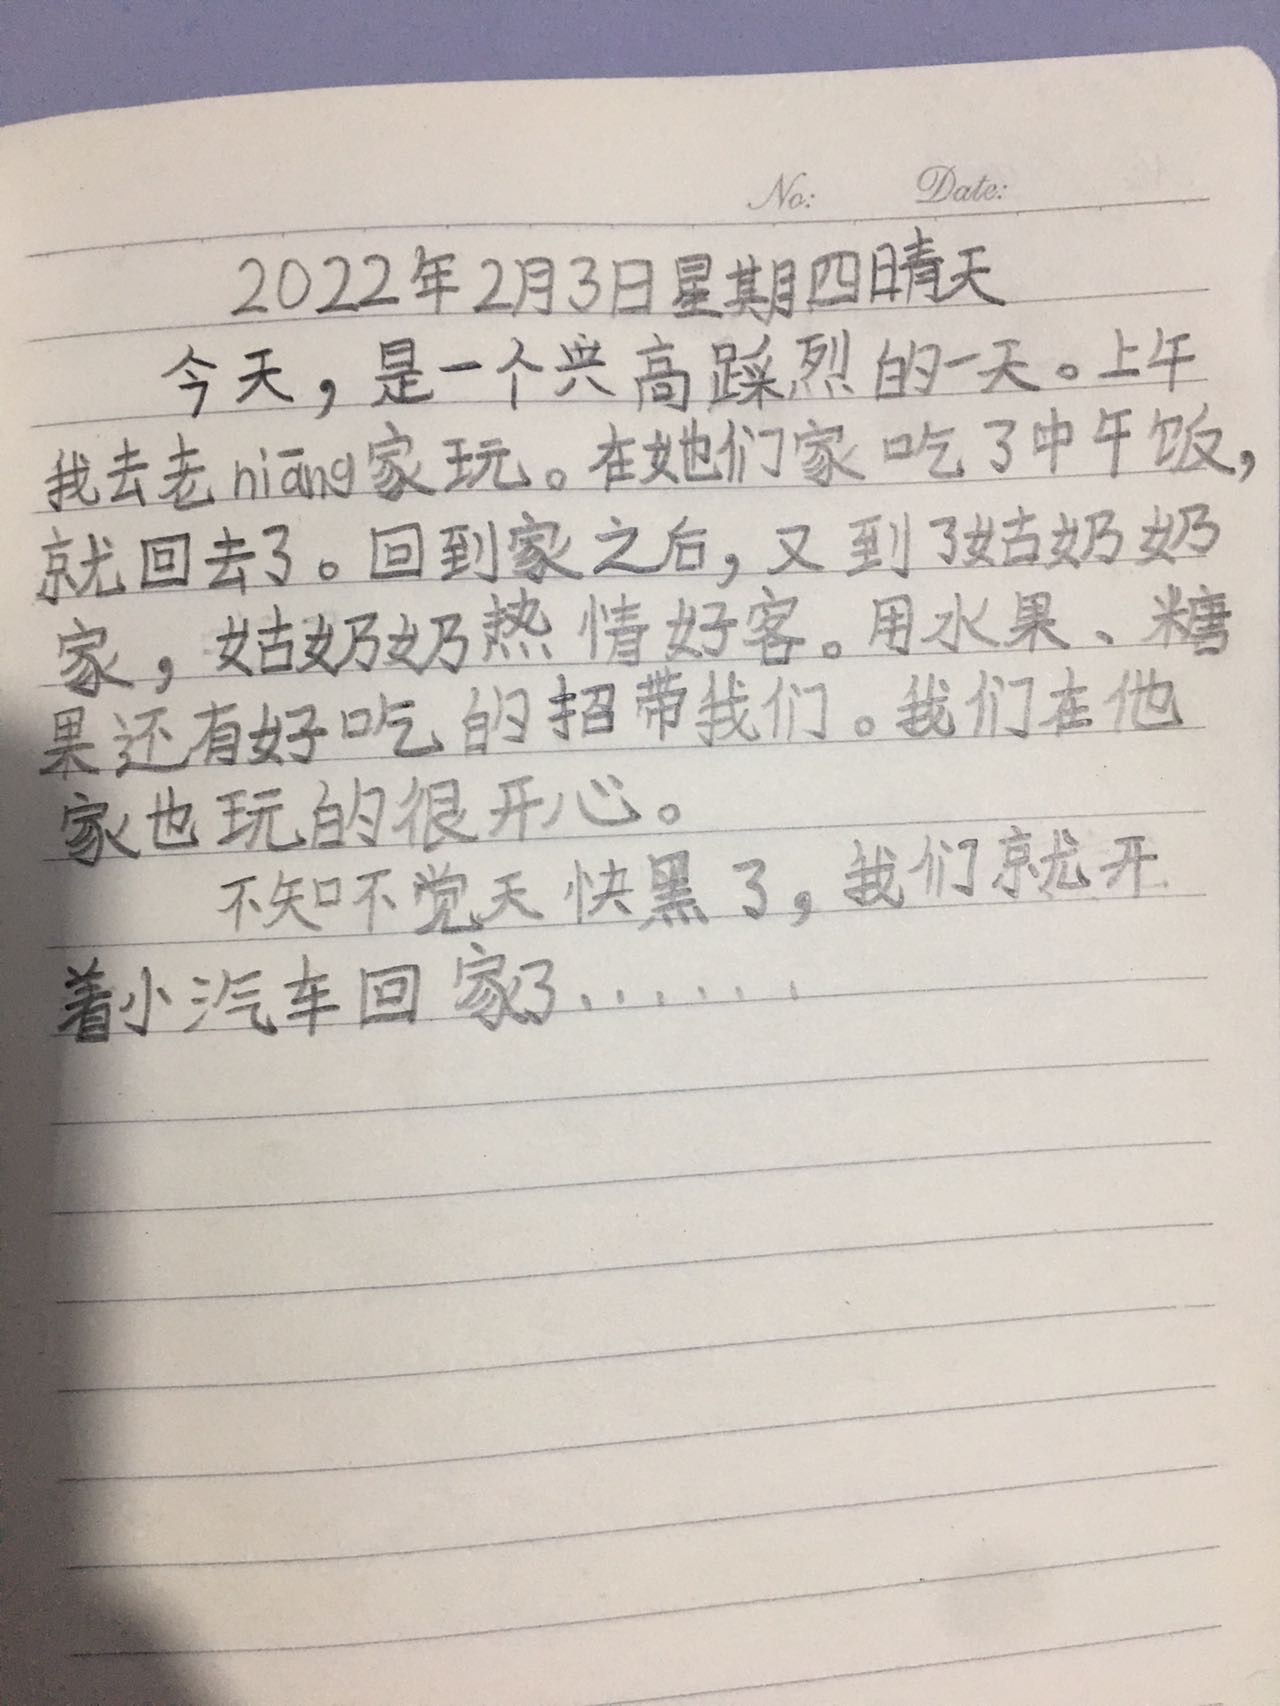 No: Date:
2022年2月3日星期四晴天
今天，是一个兴高踩烈的一天。上午
我去老niāng家玩。在她们家吃了中午饭，
就回去了。回到家之后，又到了姑奶奶
家，姑奶奶热情好客。用水果、糖
果还有好吃的招带我们。我们在他
家也玩的很开心。
不知不觉天快黑了，我们就开
着小汽车回家了......